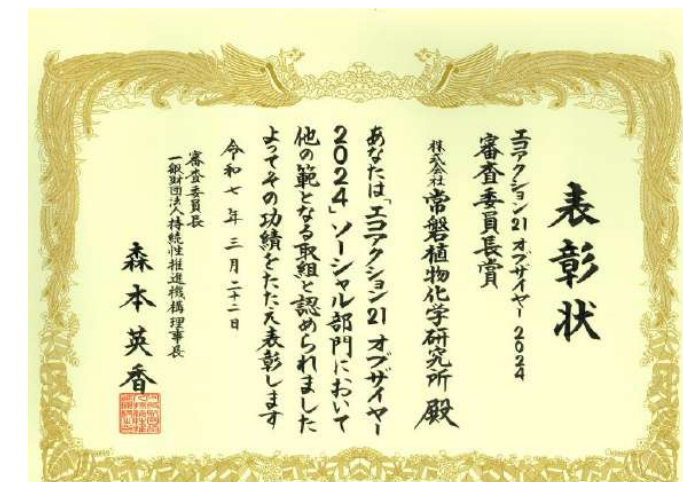 表彰状
エコアクション21 オブザイヤー 2024
審査委員長賞
株式会社 常磐植物化学研究所 殿
あなたは「エコアクション21 オブザイヤー
2024」ソーシャル部門において
他の範となる取組と認められました
よってその功績をたたえ表彰します
令和七年三月二十二日
審査委員長
一般財団法人持続性推進機構 理事長
森本英香